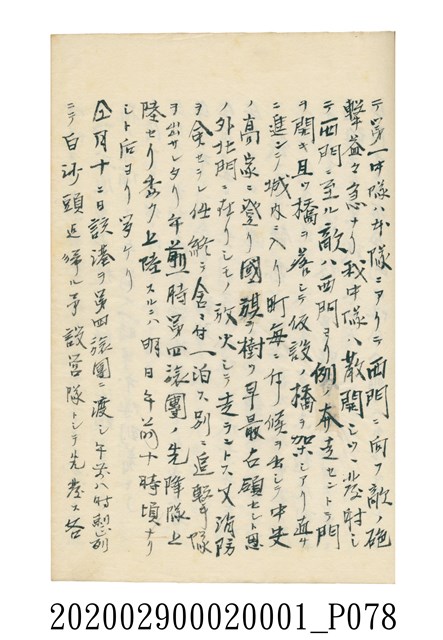 テ第一中隊ハ本隊ニアリテ西門ニ向フ敵ノ砲
撃益々急ナリ我中隊ハ散開シツヽ発射シ
テ西門ニ至ル敵ハ西門ヨリ例ノ奔走セントテ門
ヲ開キ且ツ橋ヲ落シテ仮設ノ橋ヲ架シアリ直ニ
ニ進ンテ城内ニ入リ町毎ニ斥候ヲ出シテ中央
ノ高家ニ登リ國旗ヲ樹フ早最占領セント思
ノ外北門ニ在リシモノ放火シテ走ラントス又消防
ヲ命セラレ仕終テ舎ニ付一泊ス別ニ追撃隊
ヲ出サレタリ午前 時第四旅團ノ先陣隊上
陸セリ委ク上陸スルハ明日午前十時頃ナリ
シト后ヨリ聞ケリ
仝月十二日該港ヲ第四旅團ニ渡シ午前八時 出 
ニテ白沙頭迄帰ル予設営隊トシテ先発ス各
202002900020001_P078